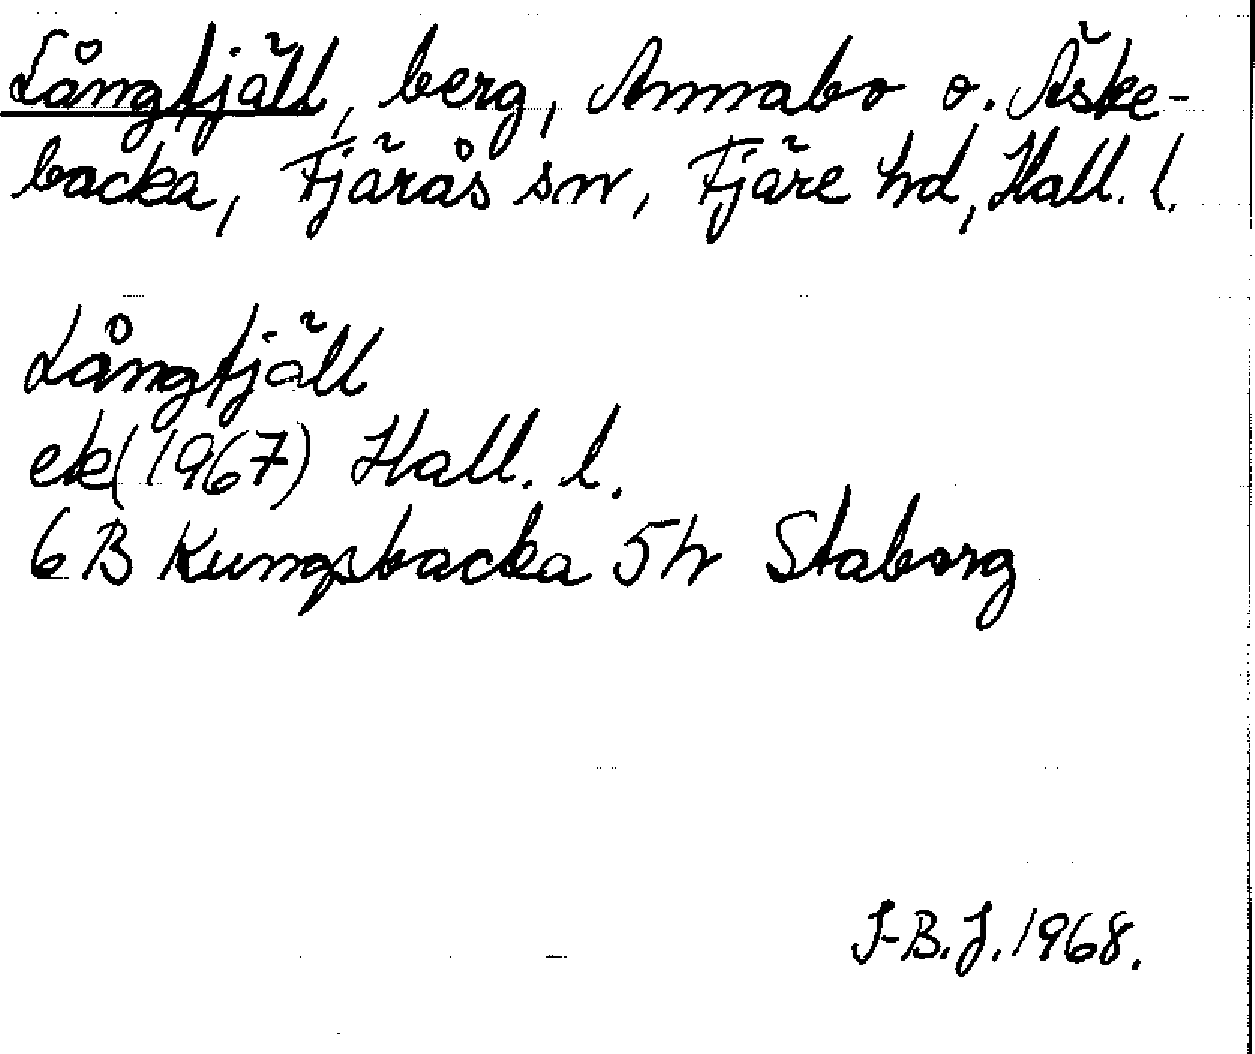 Långfjäll, berg, Annabo o. Äske-
backa, Fjärås sn, Fjäre hd, Hall. l.
Långfjäll
ek (1967) Hall. l.
6 B Kungsbacka 5 h Staborg
J-B. J. 1968.